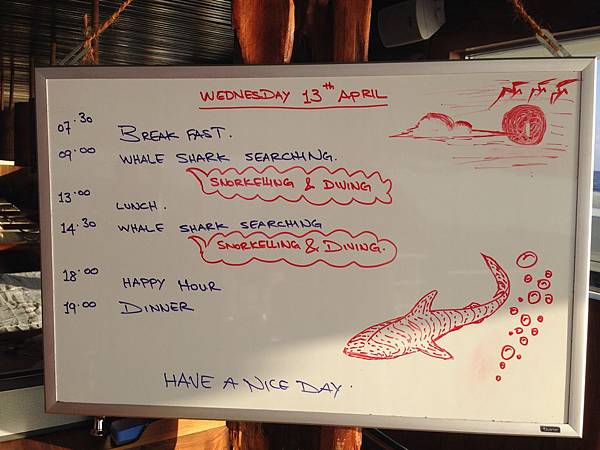 WEDNESDAY 13th APRIL
07.30 BREAK FAST.
09.00 WHALE SHARK SEARCHING.
SNORKELLING & DIVING
13.00 LUNCH.
14.30 WHALE SHARK SEARCHING
SNORKELLING & DIVING.
18.00 HAPPY HOUR
19.00 DINNER
HAVE A NICE DAY.